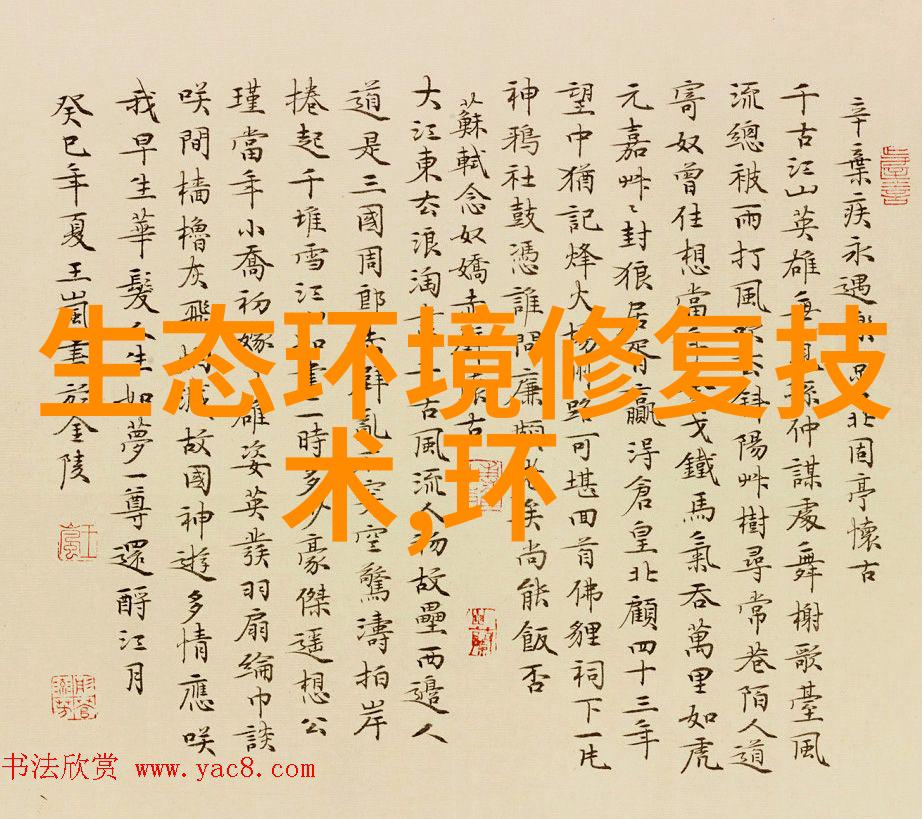 辛棄疾永遇樂京口北固亭懷古
千古江山英雄無覓孫仲謀處舞榭歌臺風
流總被雨打風吹去斜陽艸樹尋常巷陌人道
寄奴曾住想當年金戈鐵馬氣吞萬里如虎
元嘉艸〻封狼居胥贏得倉皇北顧四十三年
望中猶記烽火揚州路可堪回首佛貍祠下一片
神鴉社鼓憑誰問廉頗老矣尚能飯否
蘇軾念奴嬌赤壁懷古
大江東去浪淘盡千古風流人物故壘西邊人
道是三國周郎赤壁亂石穿空驚濤拍岸
捲起千堆雪江山如畫一時多少豪傑遙想公
瑾當年小喬初嫁了雄姿英發羽扇綸巾談
咲間檣櫓灰飛煙滅故國神遊多情應咲
我早生華髮人生如夢一尊還酹江月
癸巳年夏王嵐書於金陵
生态环境修复技
术,环
书法欣赏 www.yac8.com